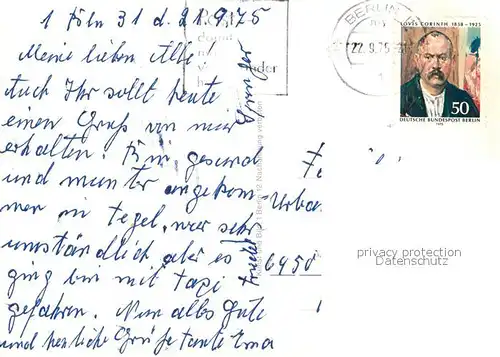 1 Köln 31 d. 21.9.75
Meine lieben Alle!
Auch Ihr sollt heute
einen Gruß von mir
erhalten. Bin gesund
und munter angekom-
men in Tegel, war sehr
umständlich aber es
ging bin mit Taxi
gefahren. Nun alles Gute
und herzliche Grüße Tante Erna
BERLIN
22.9.75
LOVIS CORINTH 1858-1925
50
DEUTSCHE BUNDESPOST BERLIN
1975
Urba
6450
privacy protection
Datenschutz